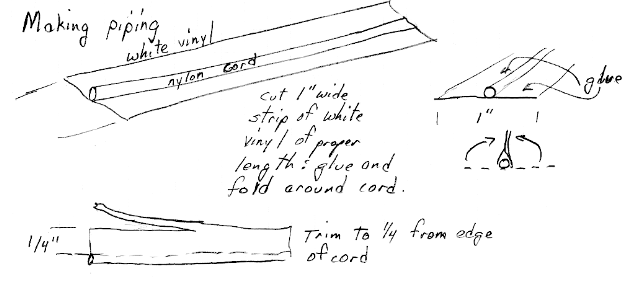 Making piping
white vinyl
nylon cord
glue
1"
cut 1" wide
strip of white
vinyl of proper
length : glue and
fold around cord.
1/4"
Trim to 1/4 from edge
of cord